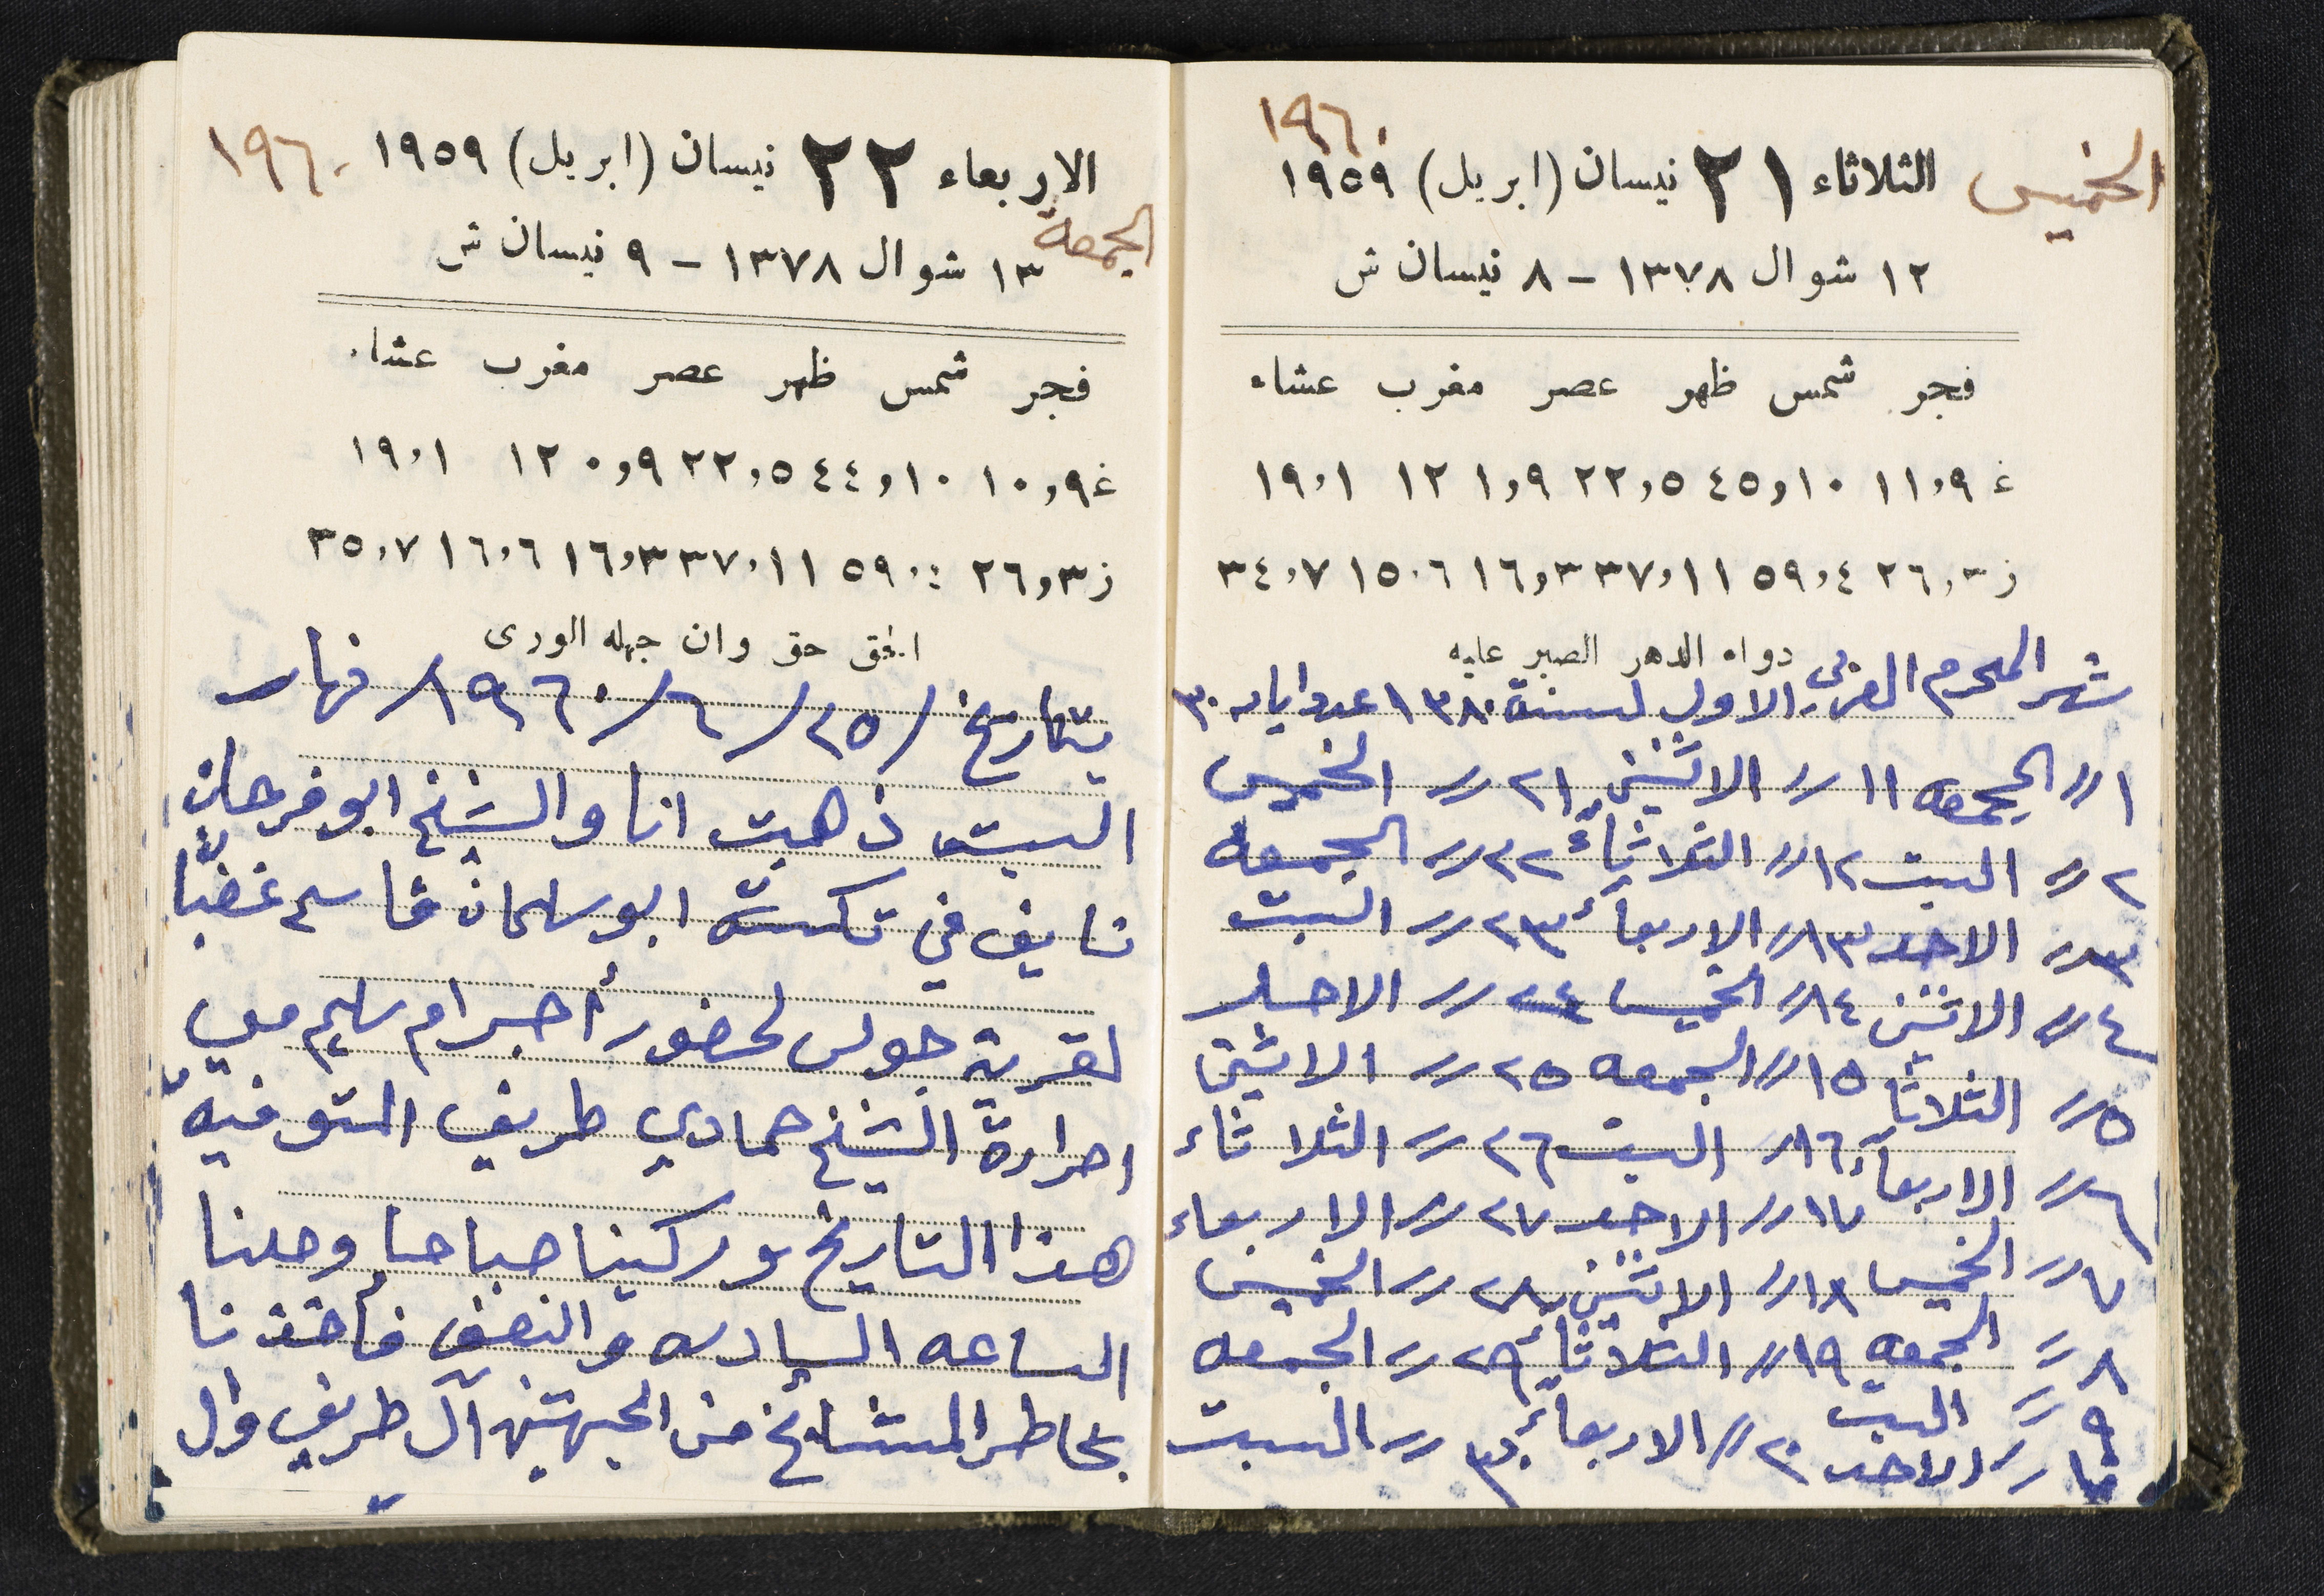 ١٩٦٠
الخميس الثلاثاء ٢١ نيسان (ابريل) ١٩٥٩
١٢ شوال ١٣٧٨ - ٨ نيسان ش
فجر شمس ظهر عصر مغرب عشاء
غ ١١,٩ ٤٥,١٠ ٢٢,٥ ١,٩ ١٢ ١٩,١
ز ٢٦,٣ ٥٩,٤ ٣٧,١١ ١٦,٣ ١٥,٦ ٣٤,٧
دواء الدهر الصبر عليه
شهر المحرم العربي الاول لسنة ١٣٨٠ عدد ايامه ٣٠
١ // الجمعه ١١ // الاثنين ٢١ // الخميس
٢ // السبت ١٢ // الثلاثاء ٢٢ // الجمعه
٣ // الاحد ١٣ // الاربعاء ٢٣ // السبت
٤ // الاثنين ١٤ // الخميس ٢٤ // الاحد
٥ // الثلاثا ١٥ // الجمعه ٢٥ // الاثنين
٦ // الاربعاء ١٦ // السبت ٢٦ // الثلاثاء
٧ // الخميس ١٧ // الاحد ٢٧ // الاربعاء
٨ // الجمعه ١٨ // الاثنين ٢٨ // الخميس
٩ // السبت ١٩ // الثلاثاء ٢٩ // الجمعه
١٠ // الاحد ٢٠ // الاربعاء ٣٠ // السبت
الاربعاء ٢٢ نيسان (ابريل) ١٩٥٩ ١٩٦٠
الجمعة
١٣ شوال ١٣٧٨ - ٩ نيسان ش
فجر شمس ظهر عصر مغرب عشاء
غ ١٠,٩ ٤٤,١٠ ٢٢,٥ ٠,٩ ١٢ ١٩,١
ز ٢٦,٣ ٥٩,٤ ٣٧,١١ ١٦,٣ ١٦,٦ ٣٥,٧
الحق حق وان جهله الورى
بتاريخ /٢٥/٦/١٩٦٠/ نهار
السبت ذهبت انا والشيخ ابو فرحان
نايف في تكسة ابو سلمان قاسم غضبّان
لقرية جولس لحضور أجر ام سليم مي
امرادة الشيخ حمادي طريف المتوفيه
هذا التاريخ وركبنا صباحا وصلنا
الساعه السادسه والنصف فاخذنا
بخاطر المشايخ من الجهتين آل طريف وال